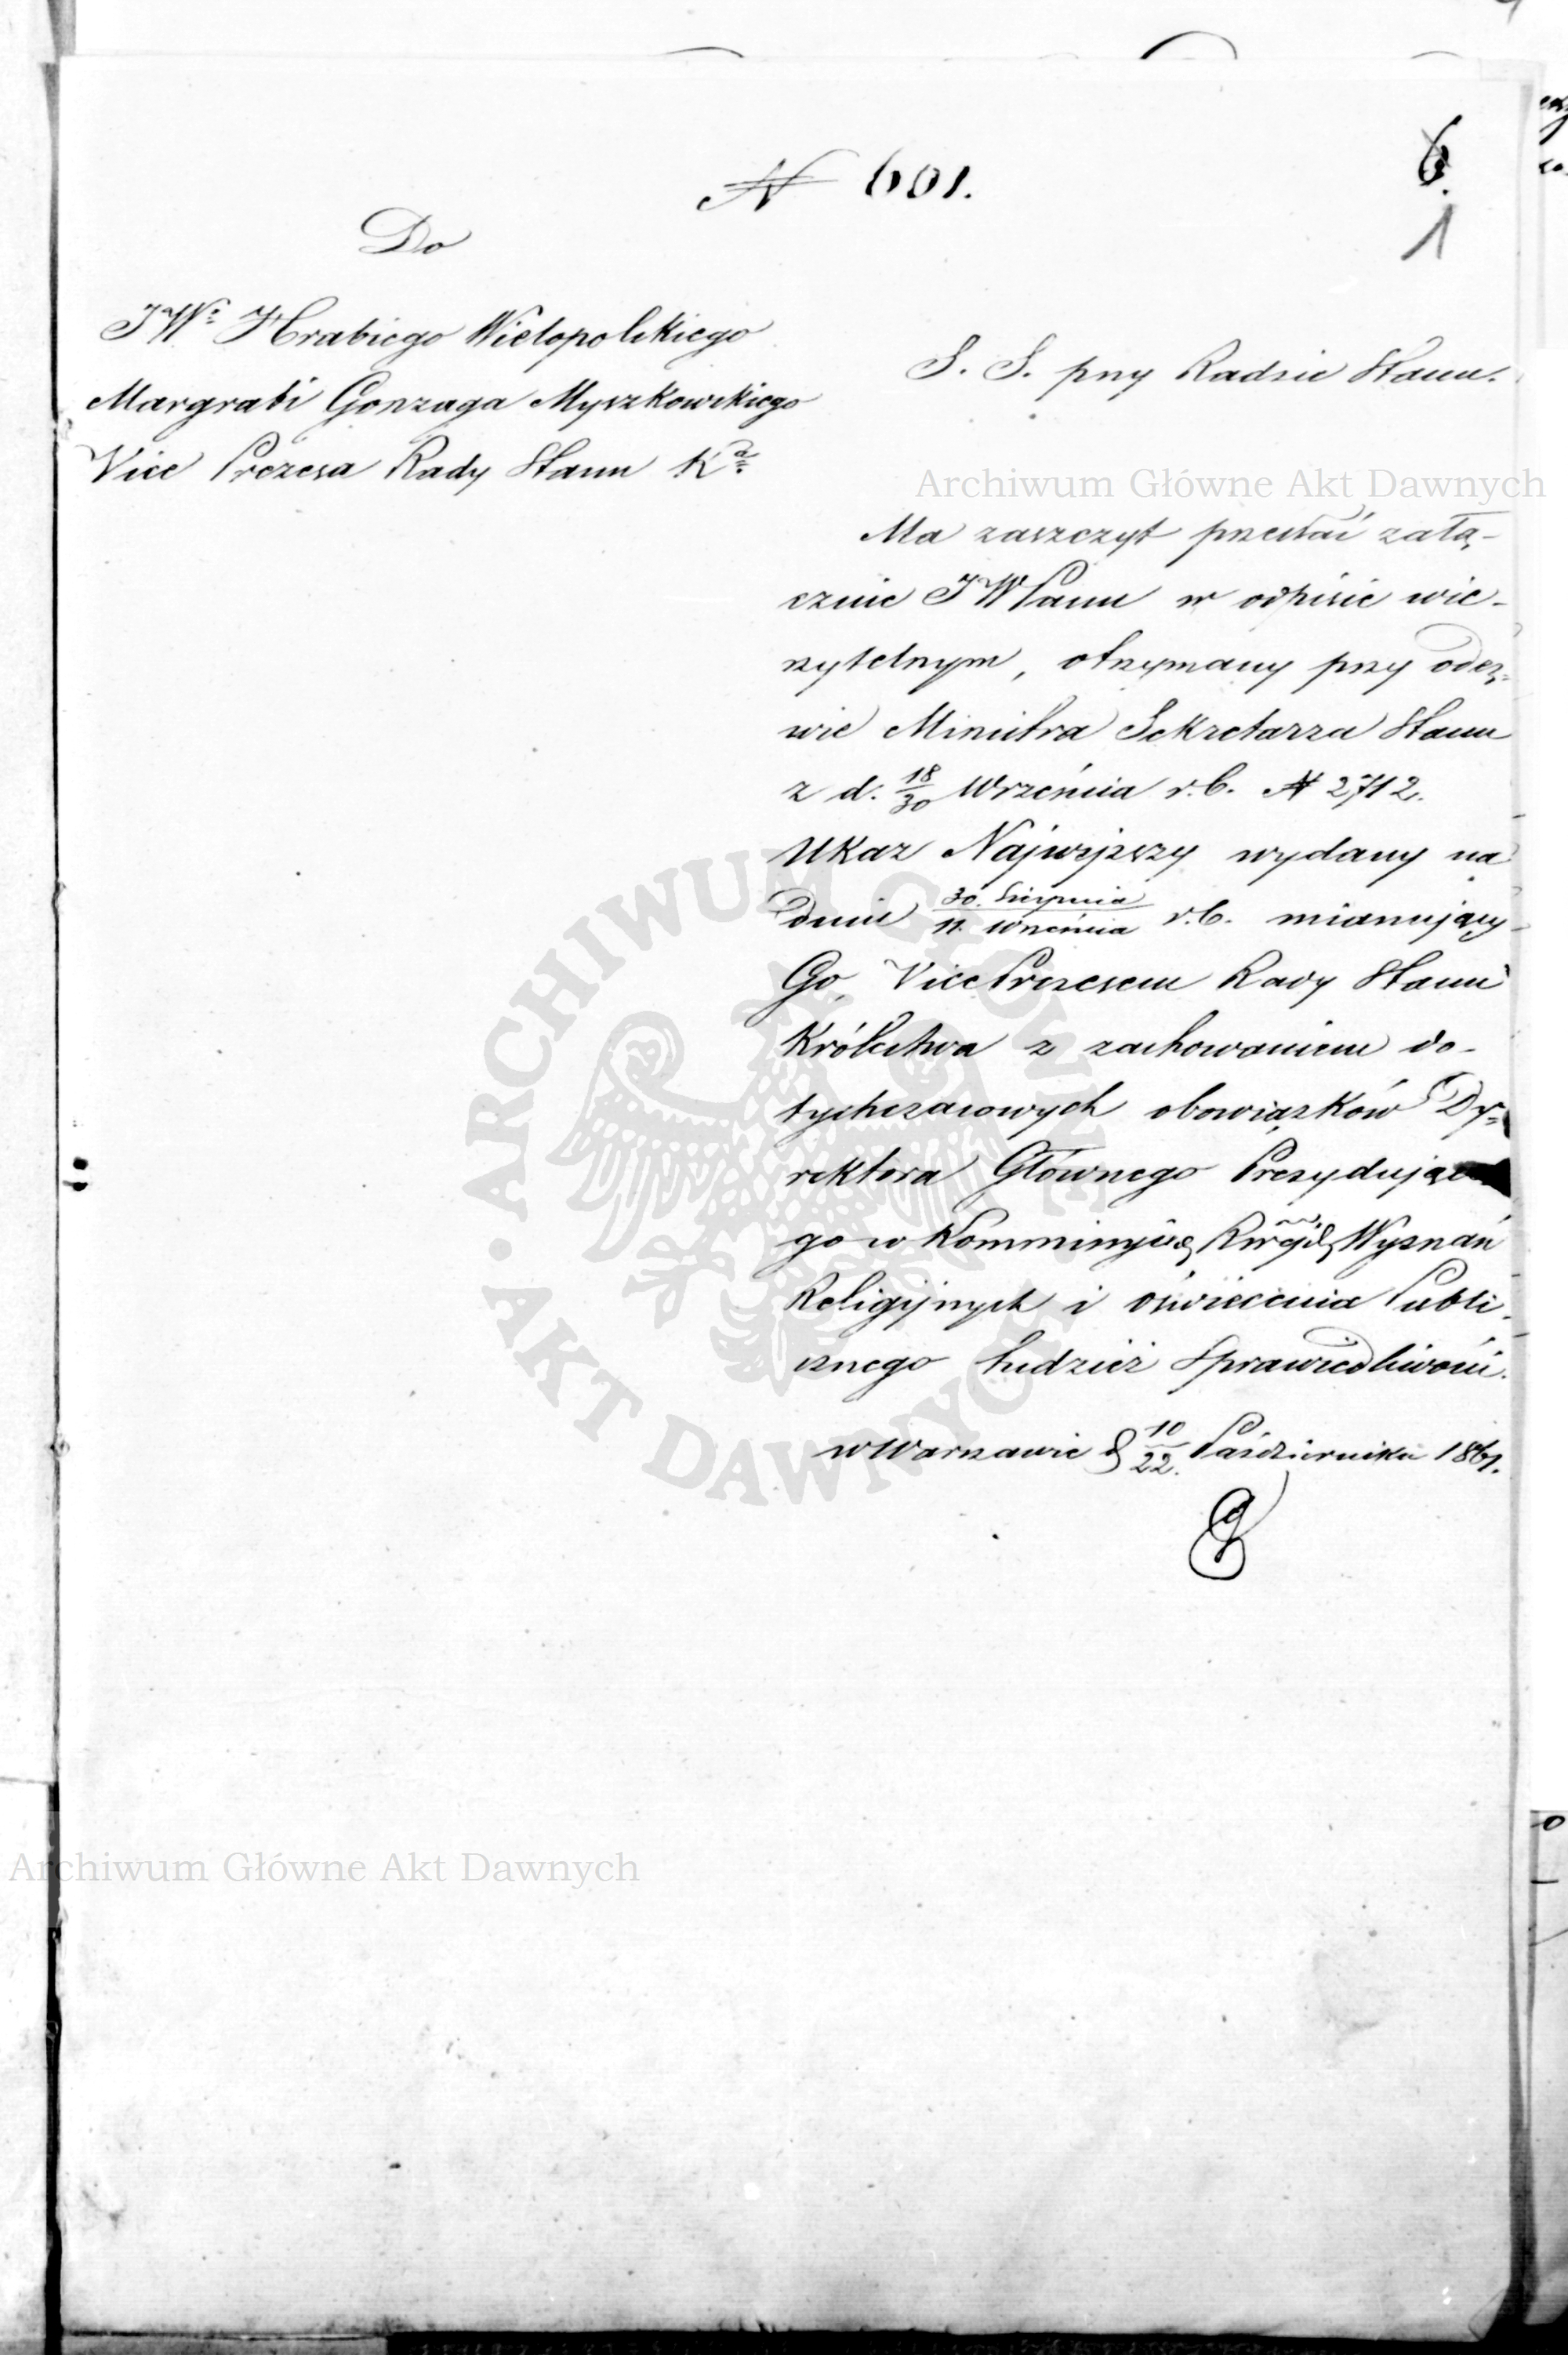 N 601.
6.
1
Do
JWo Hrabiego Wielopolskiego
Margrabi Gonzaga Myszkowskiego
Vice Prezesa Rady Stanu Ka
S. S. przy Radzie Stanu.
Archiwum Główne Akt Dawnych
Ma zaszczyt przesłać załą-
cznie JWPanu w odpisie wie-
rzytelnym, otrzymany przy odez-
wie Ministra Sekretarza Stanu
z d. 18/30 Września r.b. N 2712.
Ukaz Najwyższy wydany na
dniu 30. Sierpnia/11. Września r.b. mianujący
Go, Vice Prezesem Rady Stanu
Królestwa z zachowaniem do-
tychczasowych obowiązków Dy-
rektora Głównego Prezydujące
go w Kommissyi Rządj Wyznań
Religijnych i Oświecenia Publi-
cznego tudzież Sprawiedliwości.
w Warszawie d 10/22. Października 1861.
ARCHIWUM GŁÓWNE
AKT DAWNYCH
Archiwum Główne Akt Dawnych